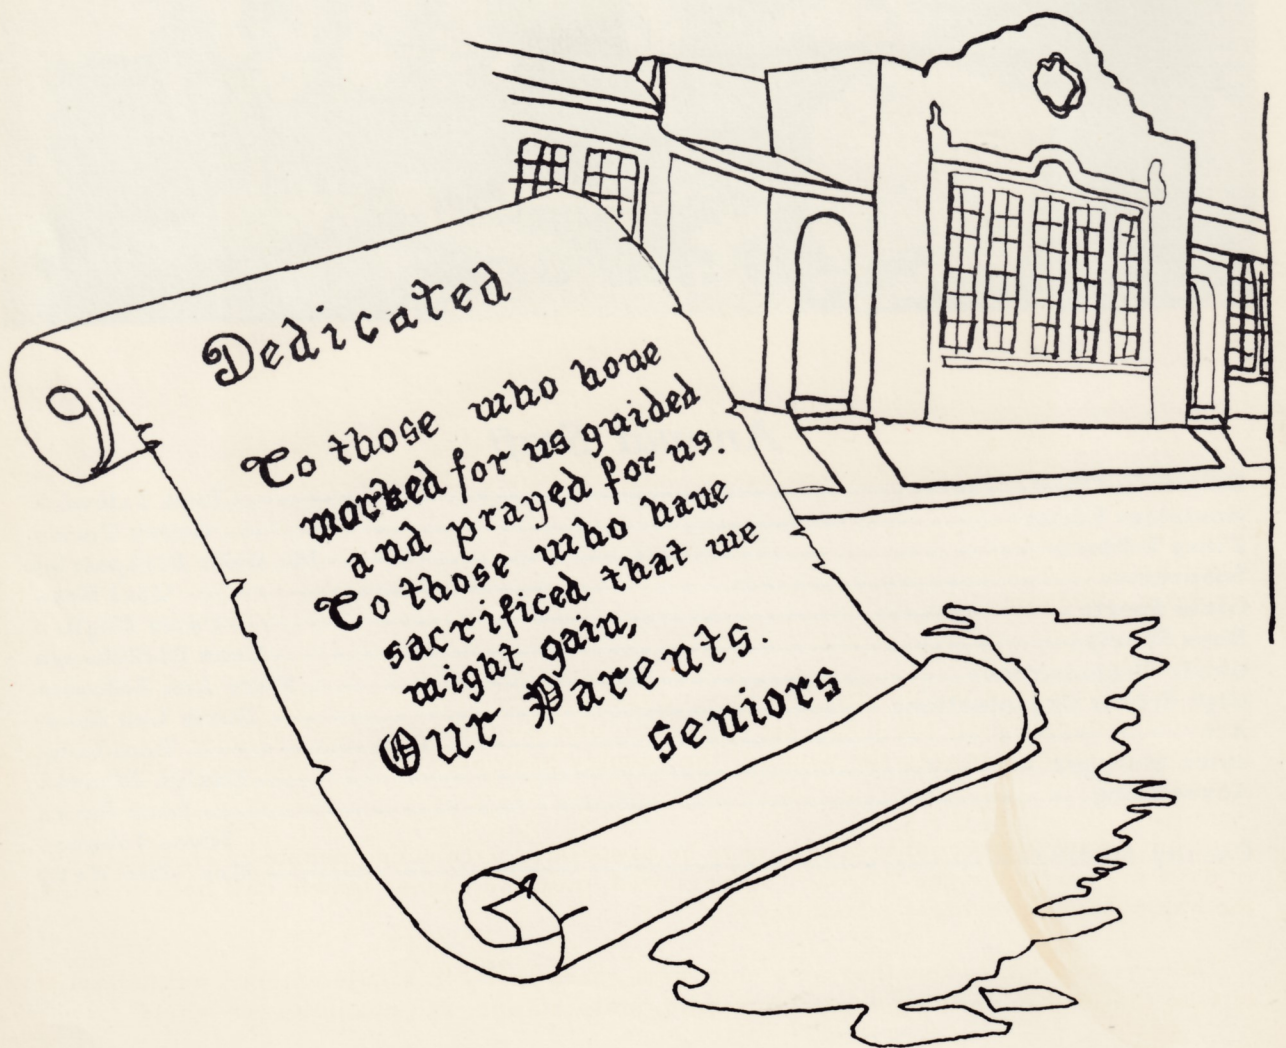 Dedicated
To those who have
worked for us guided
and prayed for us.
To those who have
sacrificed that we
might gain,
Our Parents.
Seniors